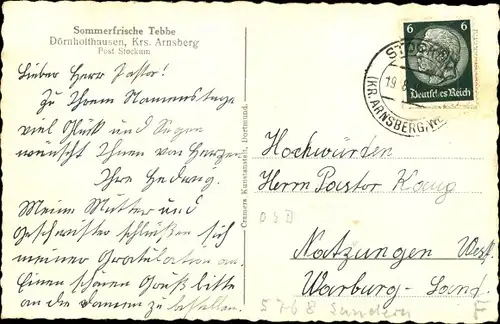 Sommerfrische Tebbe
Dörnholthausen, Krs. Arnsberg
Post Stockum
Lieber Herr Pastor!
Zu Ihrem Namenstage
viel Glück und Segen
wünscht Ihnen von Herzen
Ihre Hedwig.
Meine Mutter und
Geschwister schließen sich
meiner Gratulation an.
Einen schönen Gruß bitte
an die Damen zu bestellen.
Cramers Kunstanstalt, Dortmund.
6 6
Deutsches Reich
19.8
(KR. ARNSBERG
Hochwürden
Herrn Pastor
Natzungen Westf.
Warburg-Land.
5768 Sundern